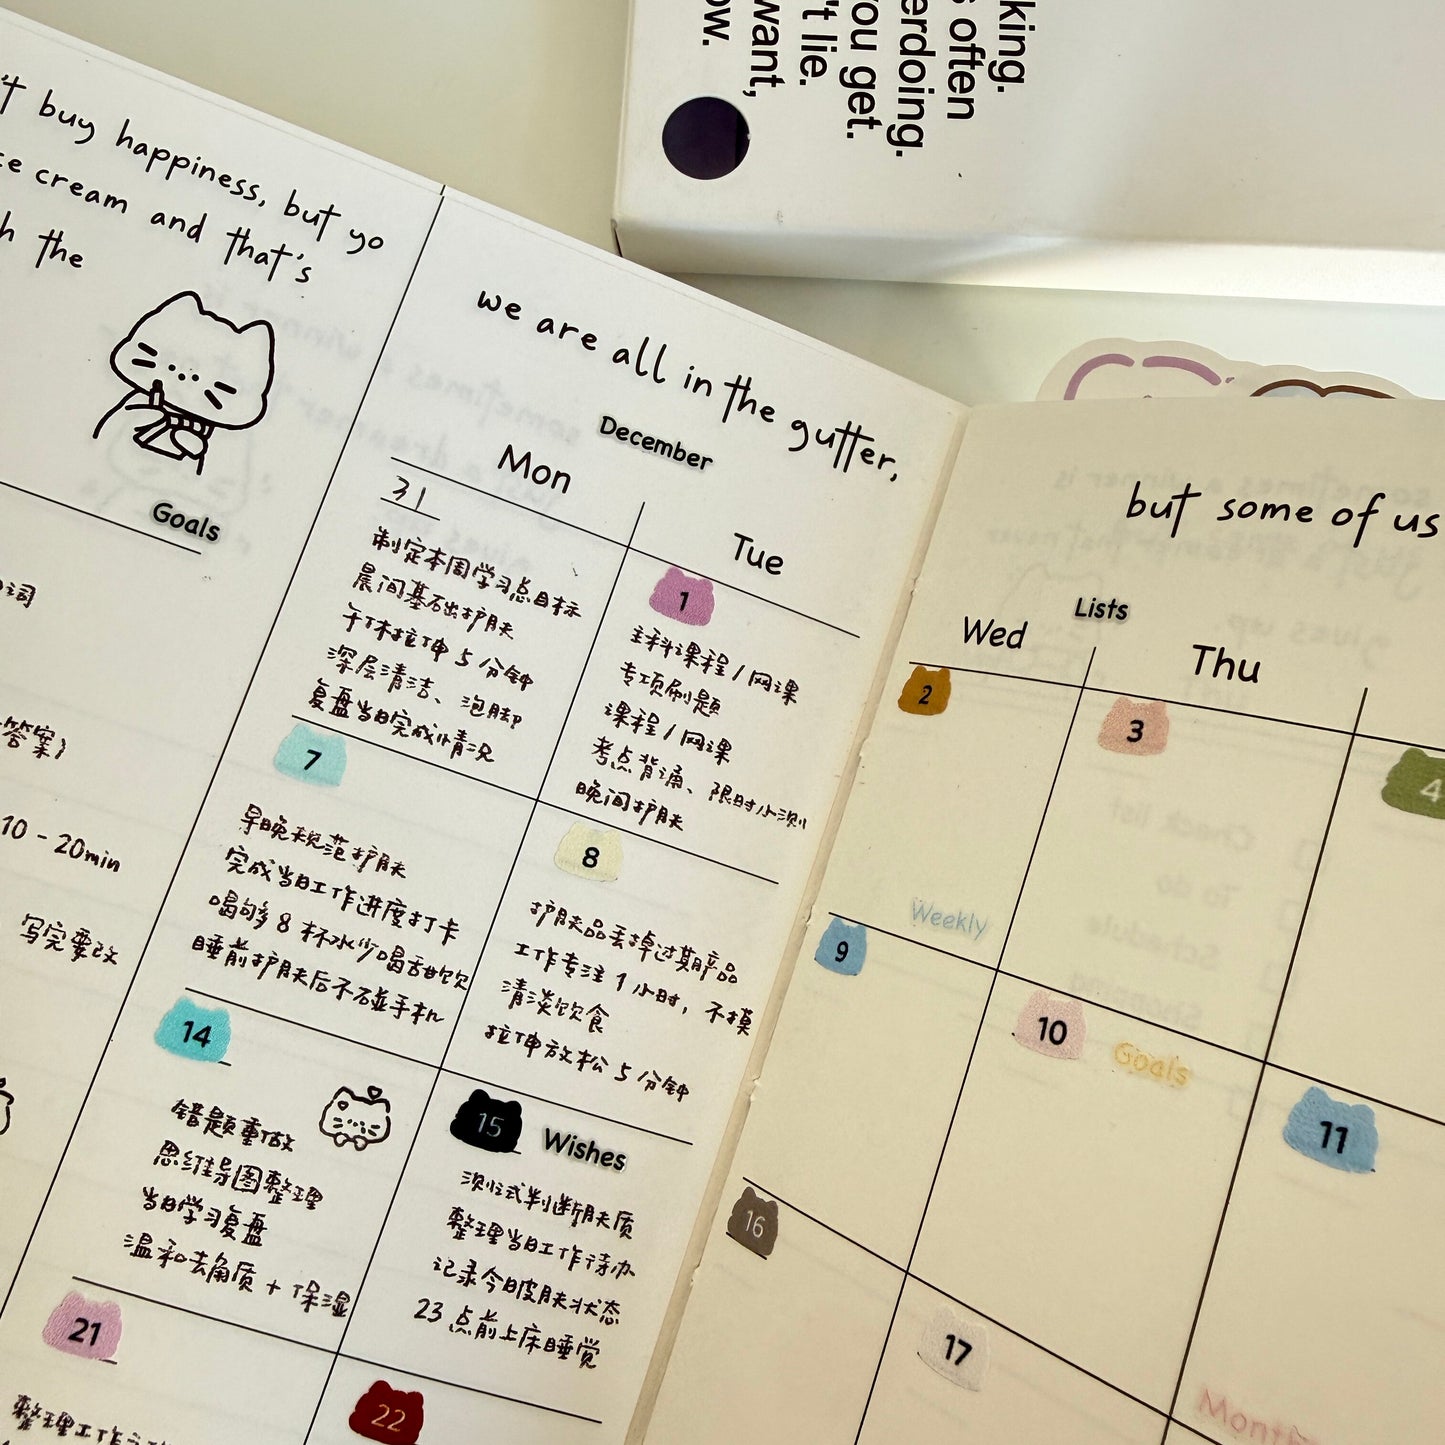 king.
often
erdoing.
you get.
't lie.
want,
ow.
't buy happiness, but yo
ce cream and that's
h the
Goals
词
答案)
10 - 20min
写完要改
we are all in the gutter,
December
Mon
Tue
31
制定本周学习总目标
晨间基础护肤
午休拉伸 5 分钟
深层清洁、泡脚
复盘当日完成情况
1
主科课程 / 网课
专项刷题
课程 / 网课
考点背诵、限时小测
晚间护肤
7
早晚规范护肤
完成当日工作进度打卡
喝够 8 杯水少喝甜饮
睡前护肤后不碰手机
8
护肤品丢掉过期产品
工作专注 1 小时,不摸
清淡饮食
拉伸放松 5 分钟
14
错题重做
思维导图整理
当日学习复盘
温和去角质 + 保湿
15
Wishes
测试式判断肤质
整理当日工作待办
记录今日皮肤状态
23 点前上床睡觉
21
整理工作
22
but some of us
Lists
Wed
Thu
2
3
4
Weekly
9
10
Goals
11
16
17
Month